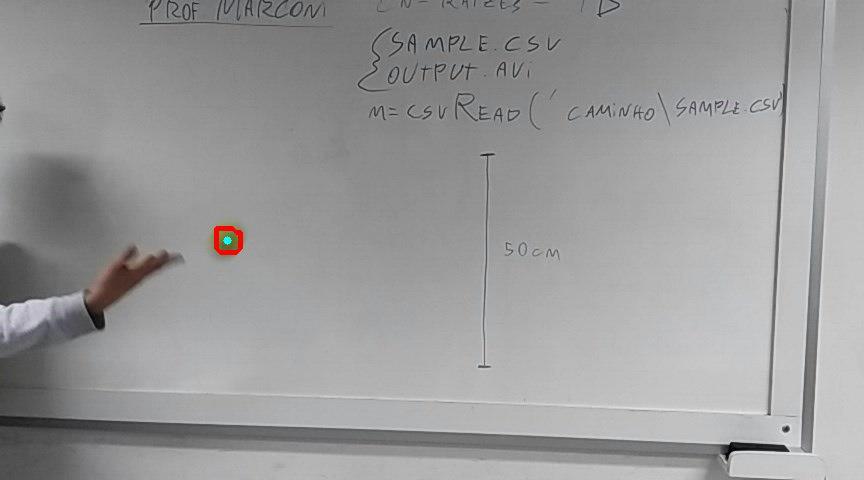 PROF MARCOM
RAIZES
SAMPLE.CSV
OUTPUT.AVI
M=CSVREAD('CAMINHO\SAMPLE.CSV
50cm